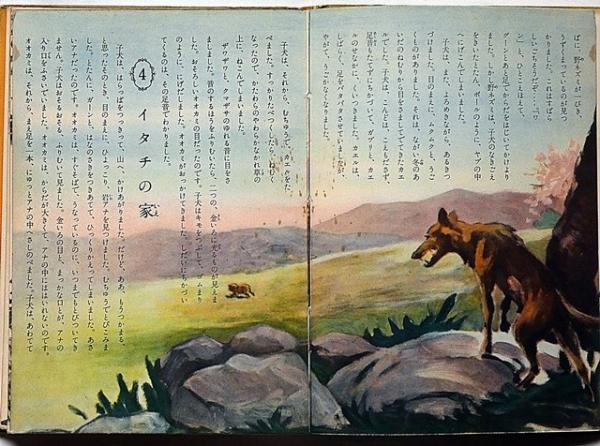 ぱに、野ネズミが一ぴき、
うずくまっているのが見つ
かりました。これはすばら
しいごちそうだぞ……。ワ
ーンと、ひとこえほえて、
グーンとあと足でからだをはじいてかかりよ
りました。しかし野ネズミは、子犬のなきごえ
をきいたとたん、ボールのように、ヤブの中
へにげこんでしまいました。
子犬は、また、よろめきながら、あるきつ
づけました。目のまえに、ムクムクと、うご
くものがありました。それは、ながい冬のあ
いだのねむりから目をさましてでてきたカエ
ルでした。子犬は、こんどは、こえもださず、
足音もたてずにちかづいて、ガブリと、カエ
ルのせなかに、くいつきました。カエルは、
しばらく、足をバタバタさせていましたが、
やがて、うごかなくなりました。
子犬は、それから、むちゅうで、カエルをた
べました。すっかりたべつくしたら、ねむく
なったので、かたわらのやわらかなかれ草の
上に、ねこんでしまいました。
ザワザワと、クマザサのゆれる音に目をさ
ましました。音のするほうをふりむいたら、二つの、金いろに光るものが見えま
した。おそろしいオオカミの目だったのです。子犬はキモをつぶして、ゴムまり
のように、にげだしました。オオカミがおっかけてきました。しだいにちかづい
てくるのが、その足音でわかりました。
4 イタチの家
いえ
子犬は、はらっぱをつっきって、山へかけあがりました。だけど、ああ、もうつかまる、
と思ったそのとき、目のまえに、ひょっこり、岩アナを見つけました。むちゅうでとびこみま
した。とたんに、ガーンと、はなのさきをつきあてて、ひっくりかえってしまいました。あさ
いアナだったのです。オオカミは、すぐそばで、うなっているのに、いつまでもとびついてき
ません。子犬はおそるおそる、ふりむいて見ました。金いろの目と、まっかな口とが、アナの
入り口をふさいでいました。オオカミは、からだが大きくて、アナの中にはいれないのです。
オオカミは、それから、まえ足を一本、にゅっとアナの中へさしのべました。子犬は、あわてて